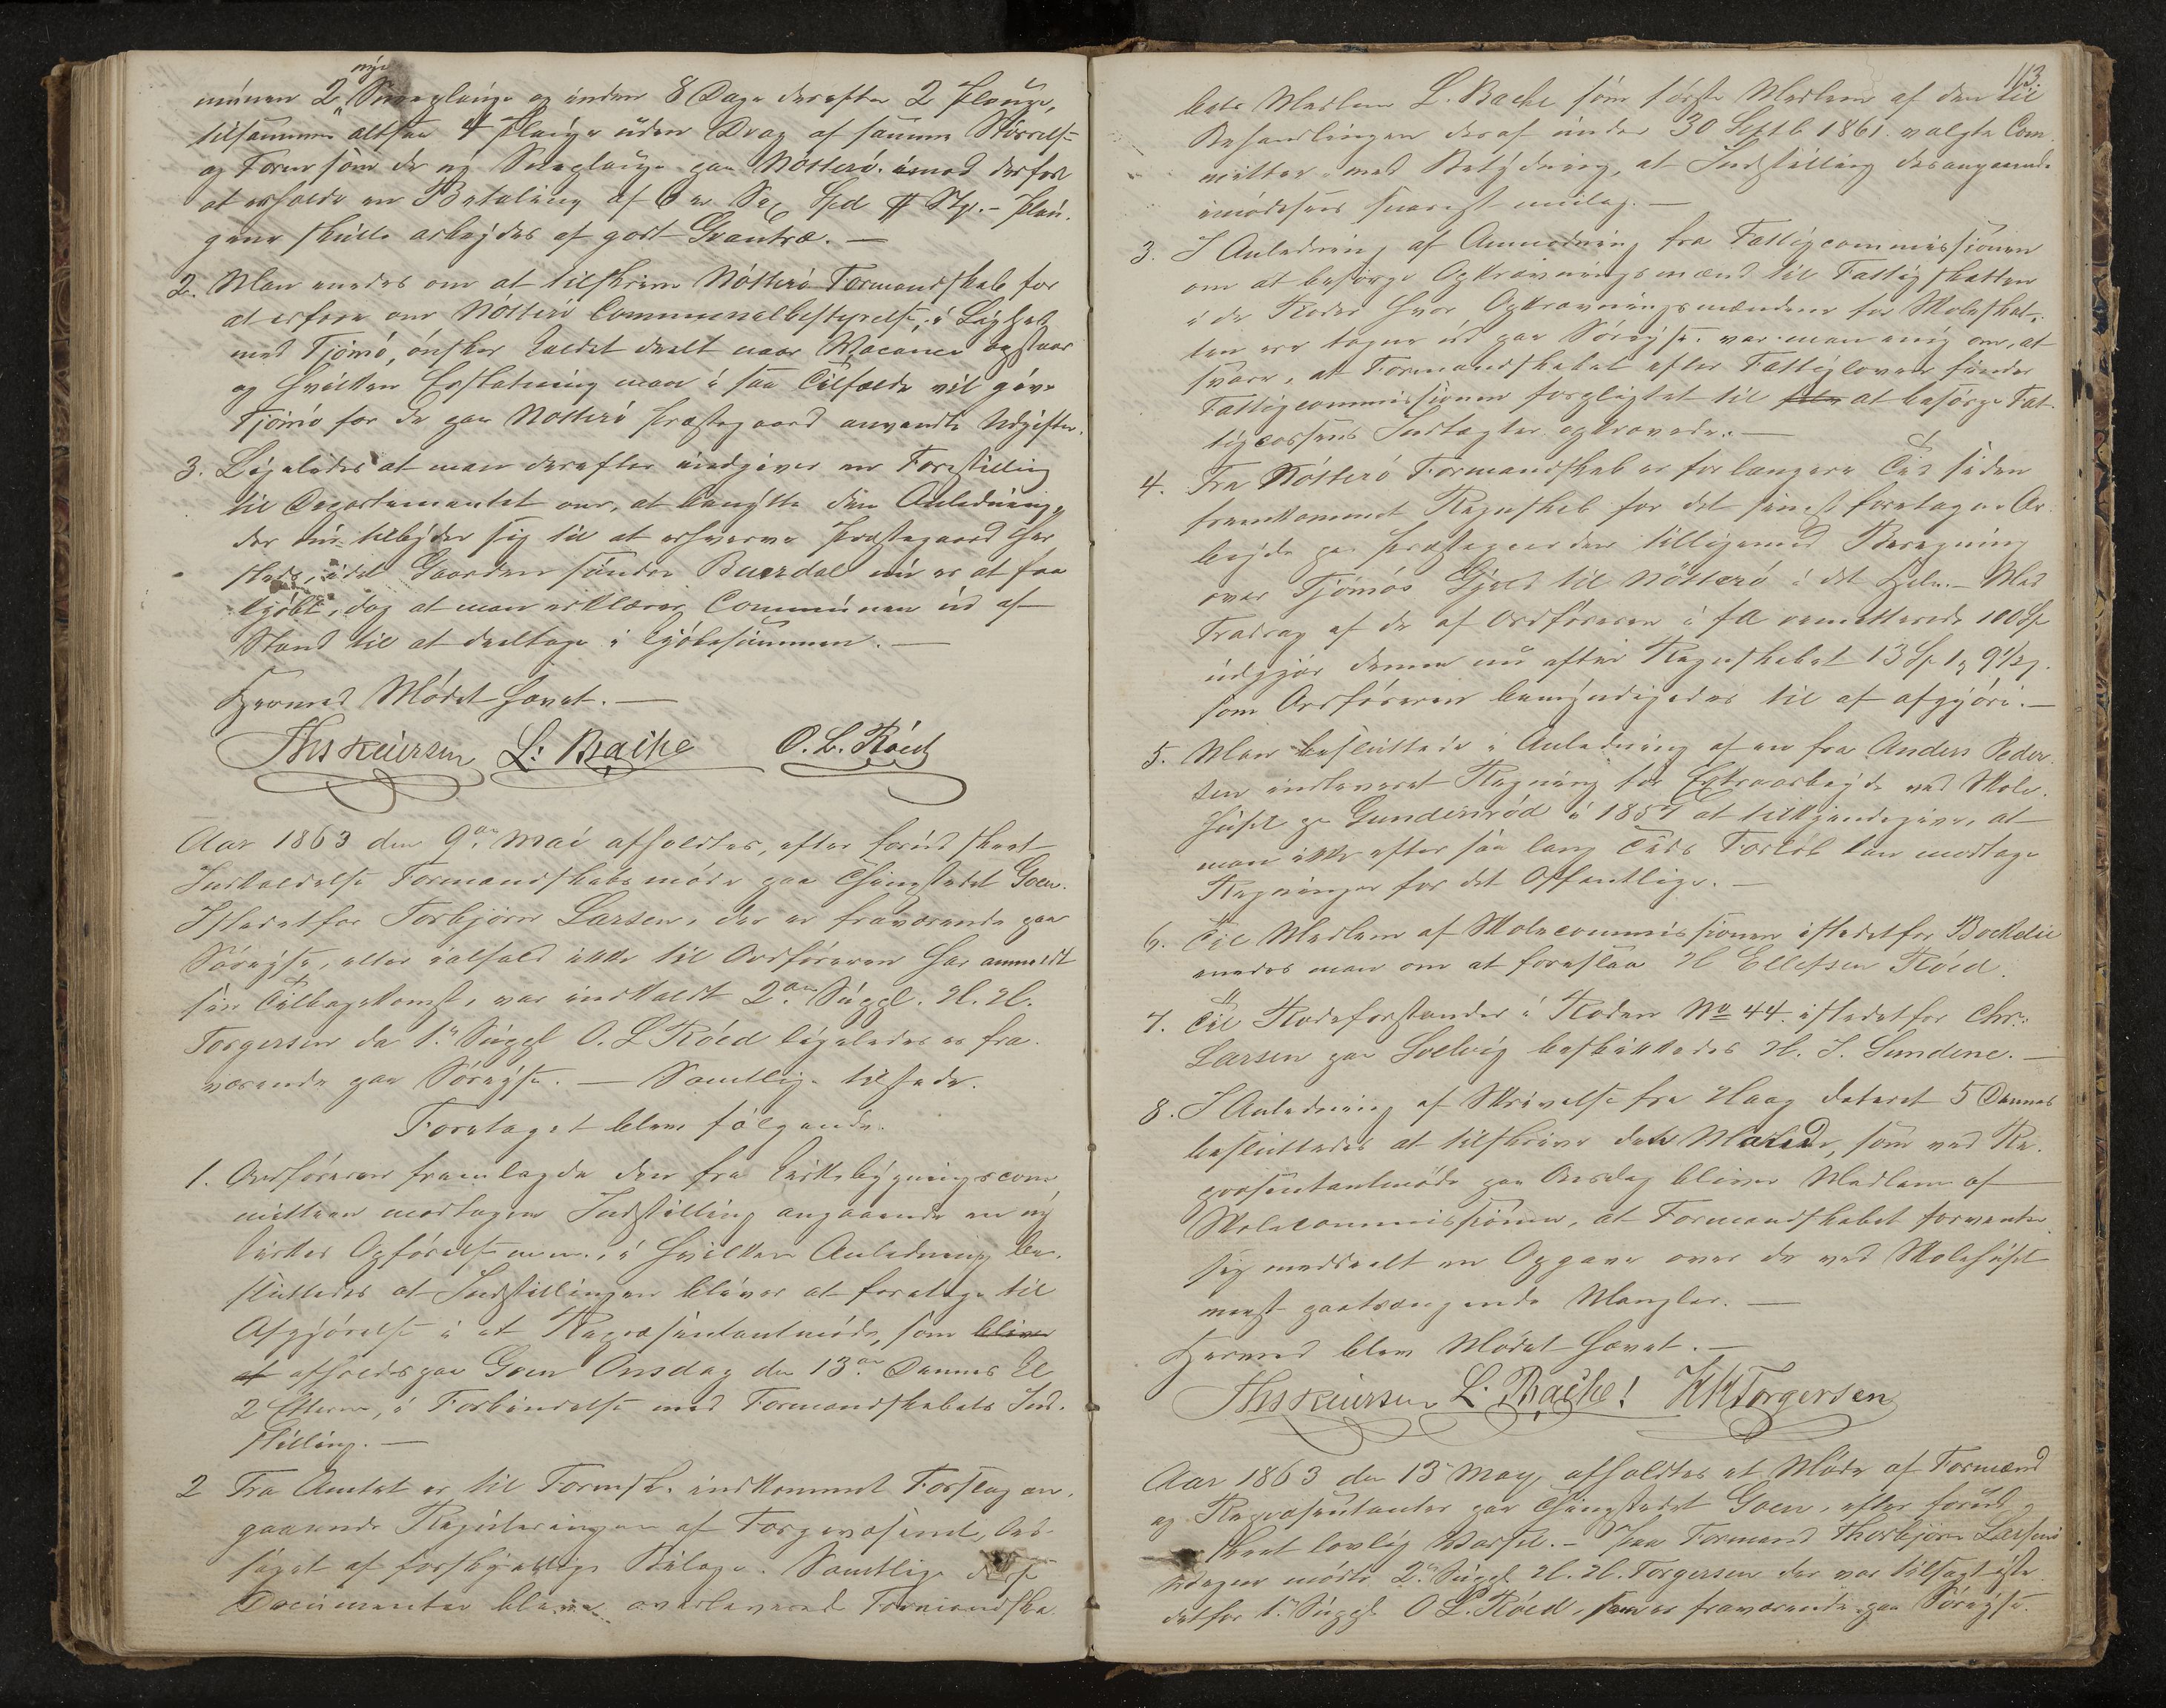 nye
munen 2 Sneeplouge og inden 8 Dage derefter 2 Plouge,
tilsammen altsaa 4 Plouge uden Drag af samme Störrelse
og Form som de ny Sneeplouge paa Nötterö. imod derfor
at erholde en Betaling af 6 er Sex Spd pr Stk. - Plou-
gene skulle arbejdes af godt Grantræ. —
2. Man enedes om at tilskrive Nötterö Formandskab for
at erfare om Nötterö Communalbestyrelse, i Lighed
med Tjömö, önsker Kaldet deelt naar Vacance opstaar
og hvilken Erstatning man i saa Tilfælde vil give
Tjömö for de paa Nötterö Præstegaard anvendte Udgifter.
3. Ligeledes at man derefter indgiver en Forestilling
til Departementet om, at benytte den Anledning,
der nu tilbyder sig til at erhverve Præstegaard her-
steds, idet Gaarden söndre Buerdal nu er at faa
kjöbt, dog at man erklærer Communen ud af
Stand til at deeltage i Kjöbesummen. —
Hermed Mödet hævet. —
Ths Keiersen L: Bache O. L. Röed
Aar 1863 den 9de Mai afholdtes, efter forud skeet
Indkaldelse Formandskabsmöde paa Thingstedet Goen.
Istedetfor Torbjörn Larsen, der er fraværende paa
Söreise, eller ialfald ikke til Ordföreren har anmeldt
sin Tilbagekomst, var indkaldt 2den Suppl. H. H.
Torgersen da 1ste Suppl O. L Röed ligeledes er fra-
værende paa Söreise. — Samtlige tilstede.
Foretaget blev fölgende.
1. Ordföreren fremlagde den fra Kirkebygningscom-
mitteen modtagne Indstilling angaaende en ny
Kirkes Opförelse m.m., i hvilken Anledning be-
sluttedes at Indstillingen bliver at foretage til
Afgjörelse i et Repræsentantmöde, som bliver
at afholdes paa Goen Onsdag den 13de Dennes Kl
2 Efterm, i Forbindelse med Formandskabets Ind-
stilling. —
2 Fra Amtet er til Formsk. indkommet Forslag an-
gaaende Reguleringen af Forgevæsenet, led-
saget af forskjellige Bilage. Samtlige disse
Documenter bleve overleverede Formandska
113.
bets Medlem L. Bache som förste Medlem af den til
Behandlingen deraf under 30 Septb 1861 valgte Com-
mittee med Betydning, at Indstilling desangaaende
imödesees snarest muligt. —
3. I Anledning af Anmodning fra Fattigcommissionen
om at besörge Opkrævningsmænd til Fattigskatten
i de Roder hvor Opkrævningsmændene for Skoleskat-
ten ere tagne ud paa Söreise. var man enig om, at
svare, at Formandskabet efter Fattigloven finder
Fattigcommissionen forpligtet til selv at besörge Fat-
tigcassens Indtægter opkrævede. —
4. Fra Nötterö Formandskab er for længere Tid siden
fremkommet Regnskab for det sidst foretagne Ar-
bejde paa Præstegaarden tilligemed Beregning
over Tjömös Gjæld til Nötterö i det Hele. - Med
Fradrag af de af Ordföreren i fA remitterede 100 Sp
udgjör denne nu efter Regnskabet 13 Sp 1 9½ s.
som Ordföreren bemyndigedes til at afgjöre. —
5. Man besluttede i Anledning af en fra Anders Peder-
sen indleveret Regning for Extraarbejde ved Skole-
huset paa Gunderröd i 1857 at tilkjendegive, at
man ikke efter saa lang Tids Forlöb kan modtage
Regninger for det Offentlige. —
6. Til Medlem af Skolecommissionen istedetfor Bockelie
enedes man om at foreslaa H Ellefsen Röed.
7. Til Rodeforstander i Roden No 44. istedetfor Chr:
Larsen paa Solvig beskikkedes H. J. Sundene. —
8. I Anledning af Skrivelse fra Haag dateret 5 Dennes
besluttedes at tilskrive dets Medlem, som ved Re-
præsentantmöde paa Onsdag bliver Medlem af
Skolecommissionen, at Formandskabet forventer
sig meddeelt en Opgave over de ved Skolehuset
mest paatrængende Mangler. —
Hermed blev Mödet hævet. —
Ths Keiersen L. Bache! HHTorgersen
Aar 1863 den 13 May, afholdtes et Möde af Formænd
og Repræsentanter paa Thingstedet Goen, efter forud
skeet lovlig Varsel. - For Formand Thorbjörn Larsens
Vegne mödte 2den Suppl H. H. Torgersen der var tilsagt iste-
detfor 1ste Suppl O L. Röed, som er fraværende paa Söreise.